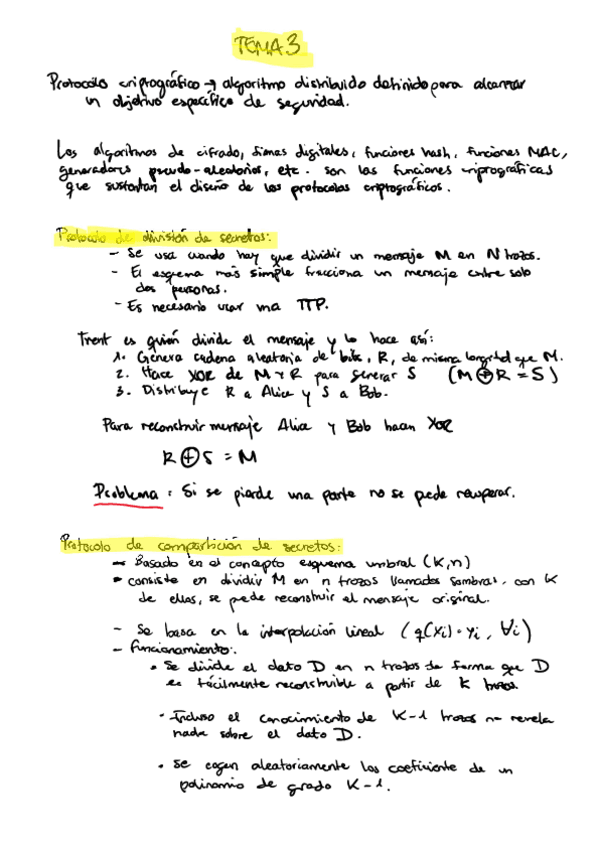 TEMA 3
Protocolo criptográfico → algoritmo distribuido definido para alcanzar
un objetivo específico de seguridad.
Los algoritmos de cifrado, firmas digitales, funciones hash, funciones MAC,
generadores pseudo-aleatorios, etc. son las funciones criptográficas
que sustentan el diseño de los protocolos criptográficos.
Protocolo de división de secretos:
- Se usa cuando hay que dividir un mensaje M en N trozos.
- El esquema más simple fracciona un mensaje entre solo
dos personas.
- Es necesario usar una TTP.
Trent es quién divide el mensaje y lo hace así:
1. Genera cadena aleatoria de bits, R, de misma longitud que M.
2. Hace XOR de M y R para generar S (M ⊕ R = S)
3. Distribuye R a Alice y S a Bob.
Para reconstruir mensaje Alice y Bob hacen XOR
R ⊕ S = M
Problema: Si se pierde una parte no se puede recuperar.
Protocolo de compartición de secretos:
- Basado en el concepto esquema umbral (K,n)
- consiste en dividir M en n trozos llamados sombras, con K
de ellos, se puede reconstruir el mensaje original.
- Se basa en la interpolación lineal (q(xi) = yi, ∀i)
- Funcionamiento:
• Se divide el dato D en n trozos de forma que D
es fácilmente reconstruible a partir de K trozos
• Incluso el conocimiento de K-1 trozos no revela
nada sobre el dato D.
• Se cogen aleatoriamente los coeficiente de un
polinomio de grado K-1.